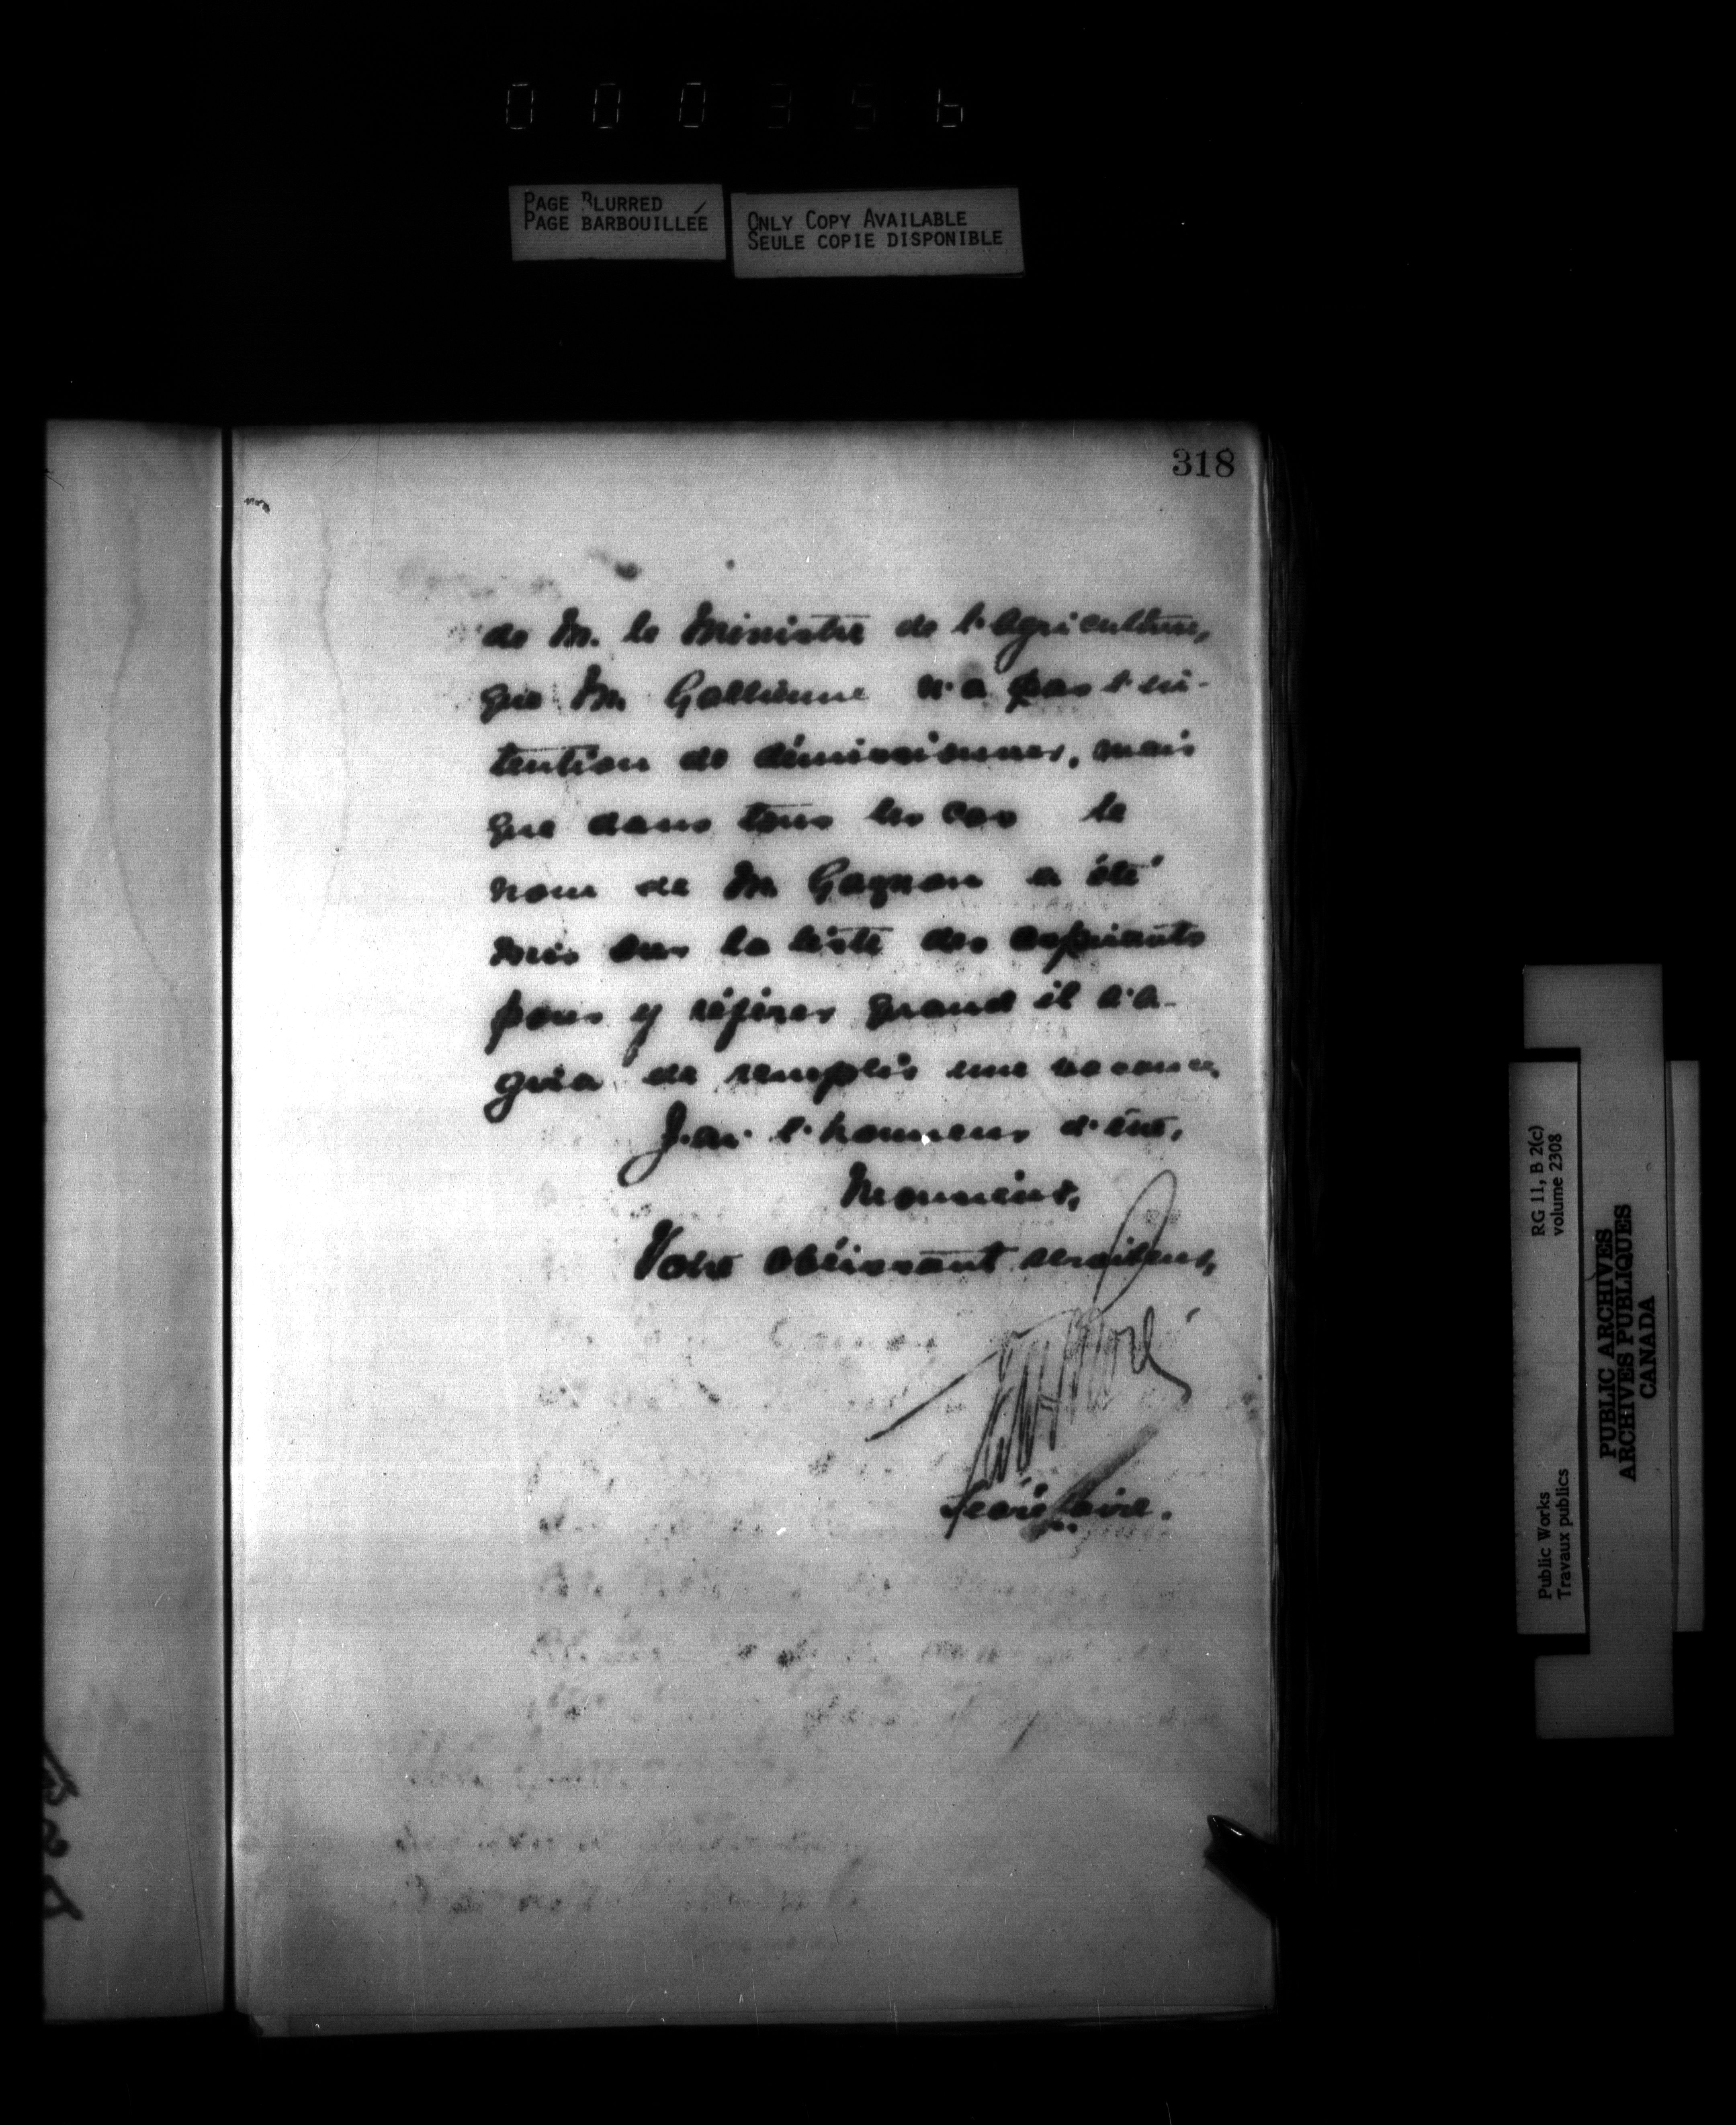 000356
PAGE BLURRED
PAGE BARBOUILLÉE
ONLY COPY AVAILABLE
SEULE COPIE DISPONIBLE
318
de M. le Ministre de l'Agriculture,
que M. Gallienne n'a pas l'in-
tention de démissionner, mais
que dans tous les cas le
nom de M. Gagnon a été
mis sur la liste des aspirants
pour y référer quand il s'a-
gira de remplir une vacance.
J'ai l'honneur d'être,
Monsieur,
Votre obéissant serviteur,
Secrétaire.
RG 11, B 2(c)
volume 2308
Public Works
Travaux publics
PUBLIC ARCHIVES
ARCHIVES PUBLIQUES
CANADA